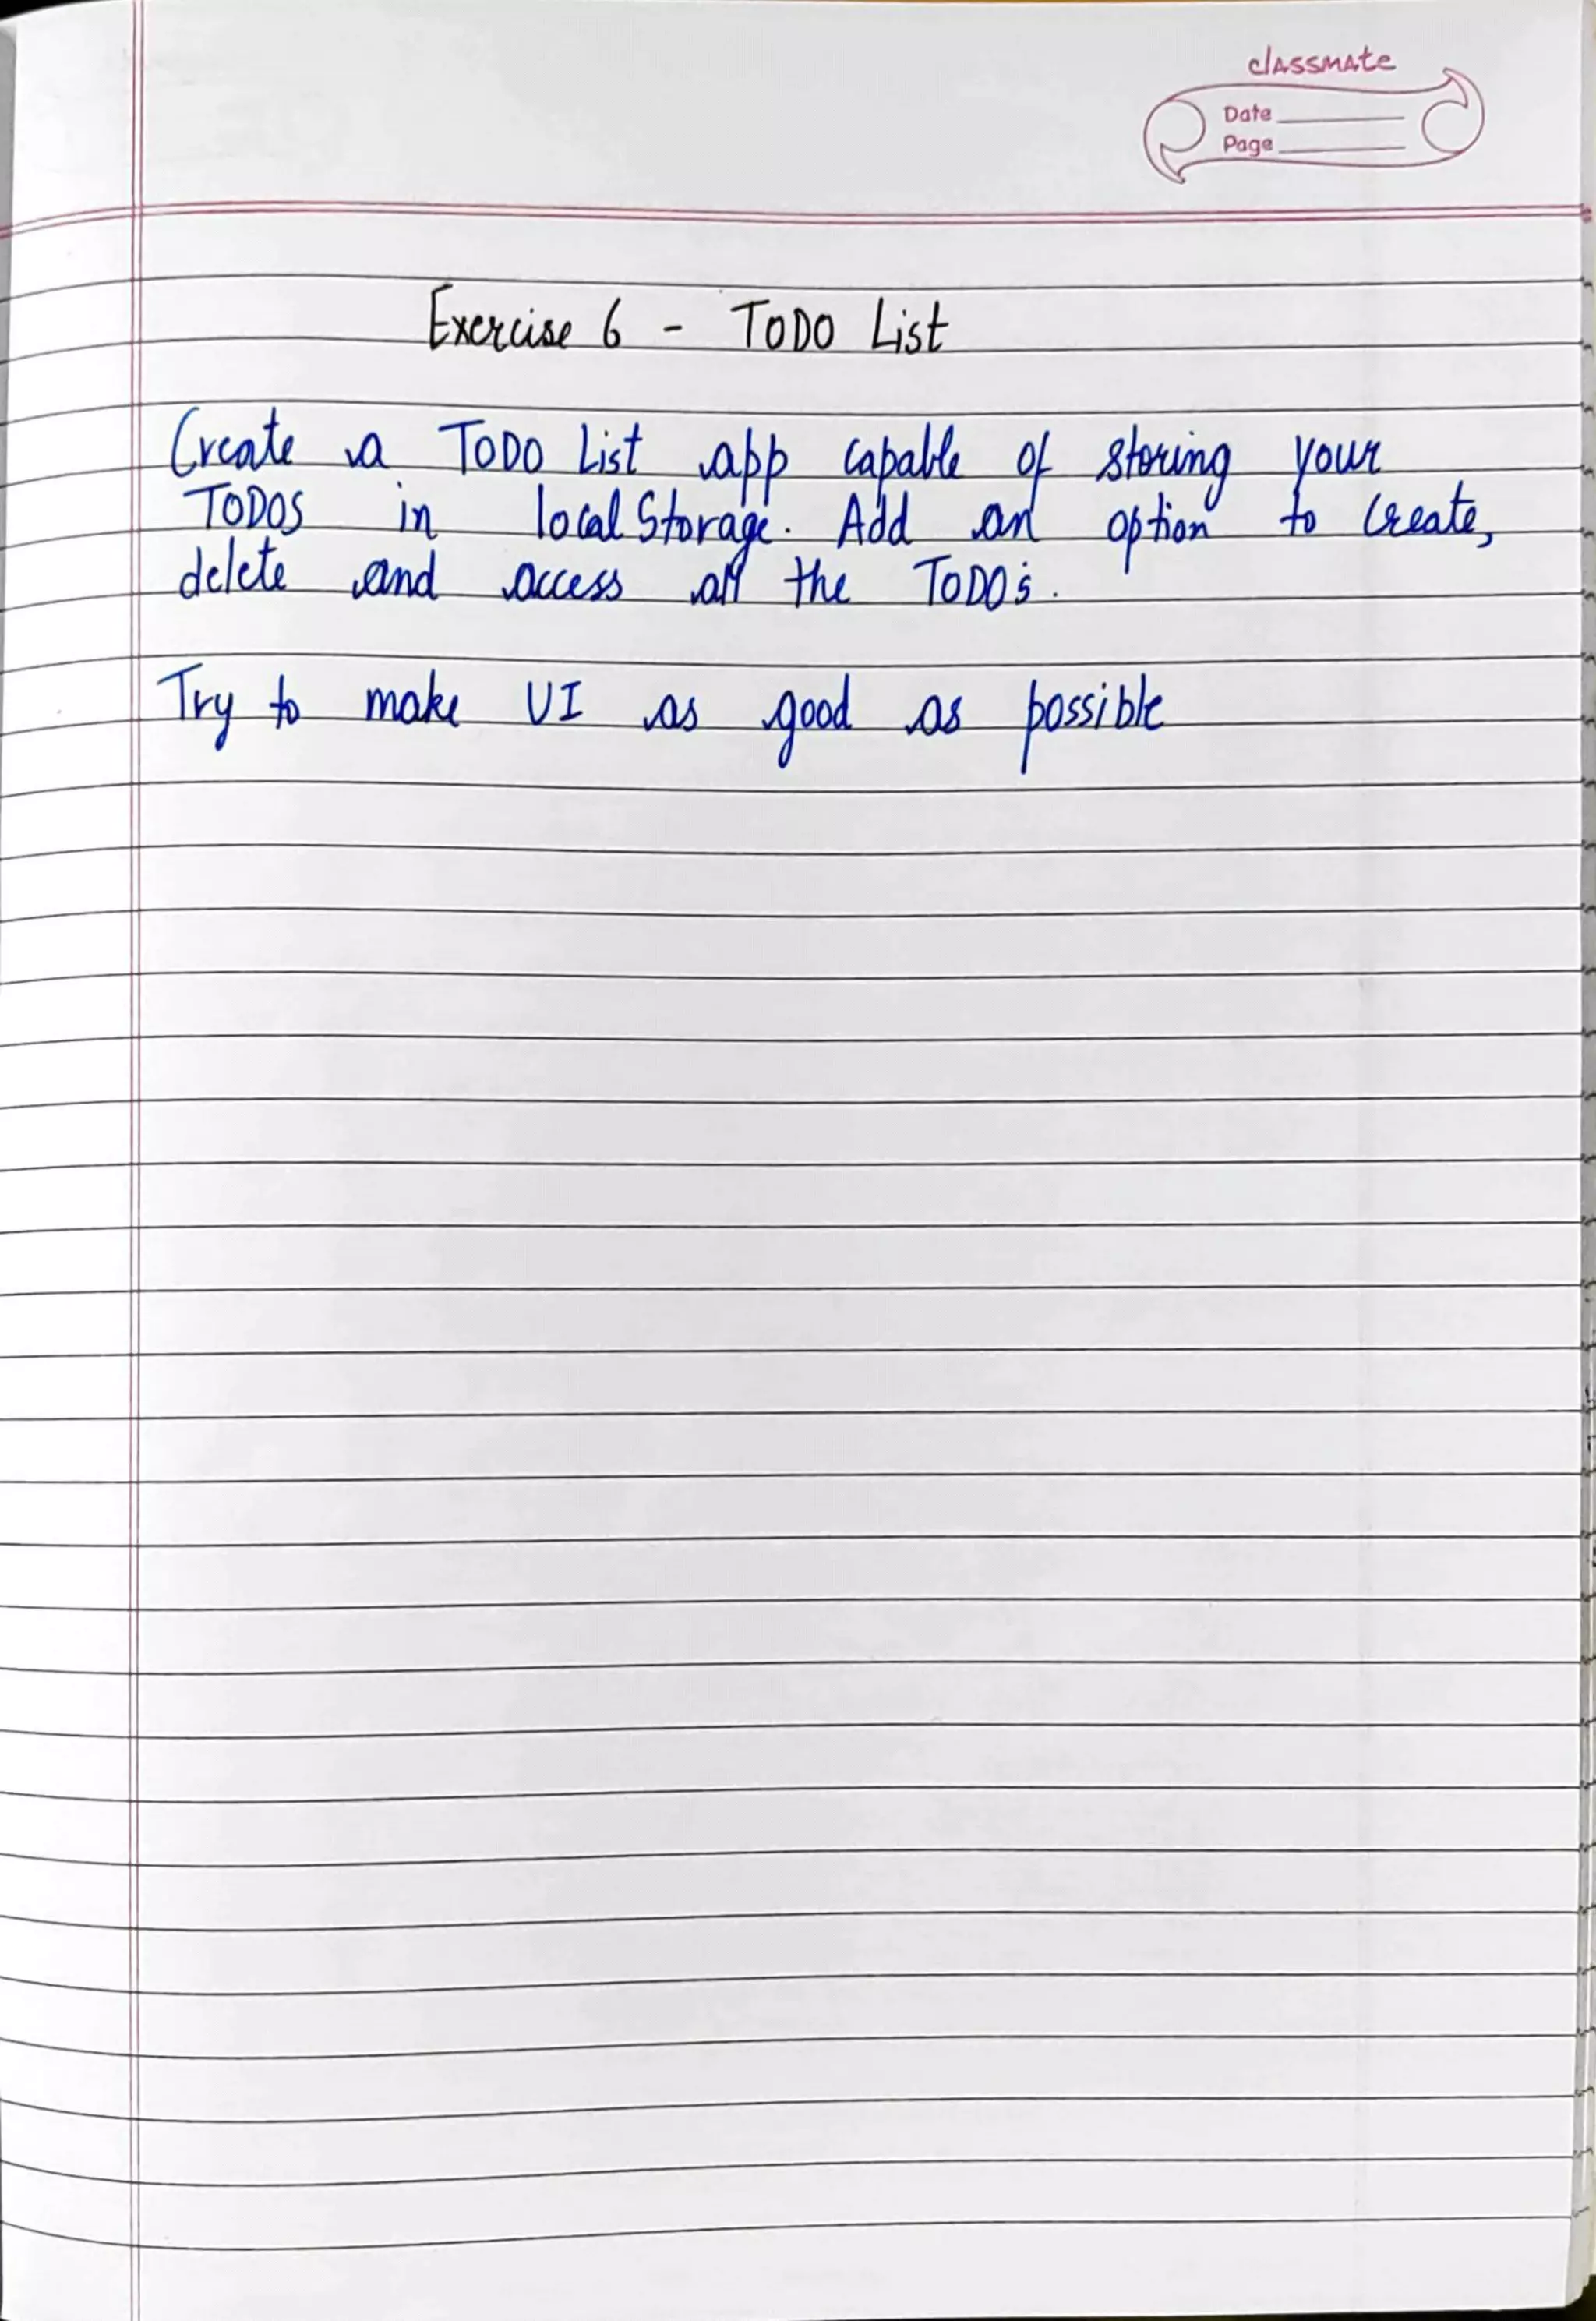 classmate
Date
Page
Exercise 6 - TODO List
Create a TODO List app capable of storing your
TODOS in localStorage. Add an option to create,
delete and access all the TODO's.
Try to make UI as good as possible